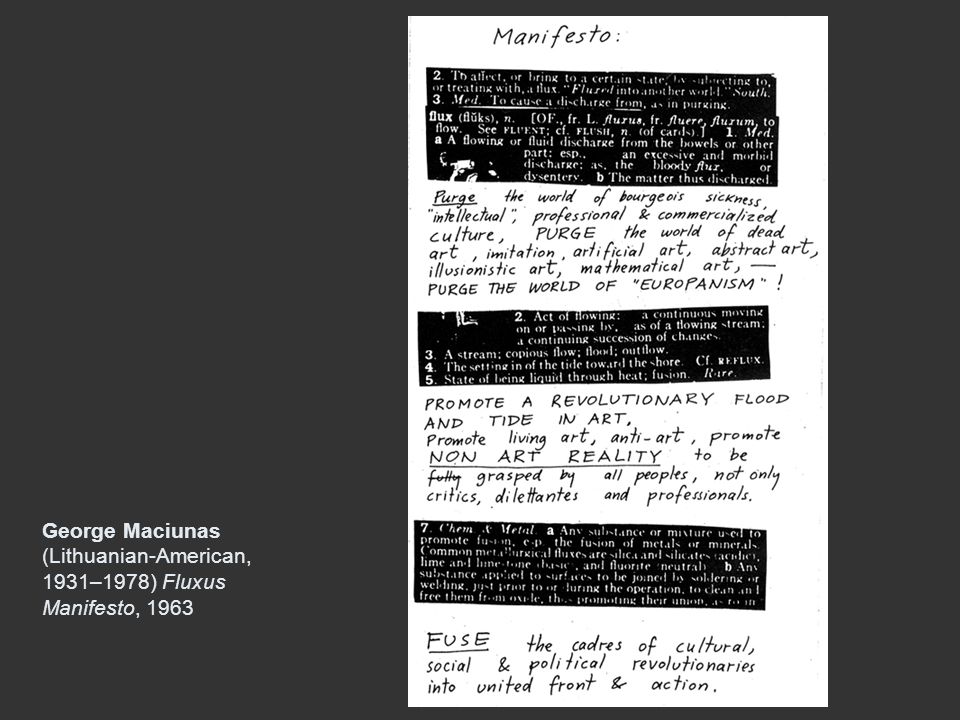 Manifesto:
2. To affect, or bring to a certain state, by subjecting to,
or treating with, a flux. "Fluxed into another world." South.
3. Med. To cause a discharge from, as in purging.
flux (flŭks), n. [OF., fr. L. fluxus, fr. fluere, fluxum, to
flow. See FLUENT; cf. FLUSH, n. (of cards).] 1. Med.
a A flowing or fluid discharge from the bowels or other
part: esp., an excessive and morbid
discharge: as, the bloody flux, or
dysentery. b The matter thus discharged.
Purge the world of bourgeois sickness,
"intellectual", professional & commercialized
culture, PURGE the world of dead
art, imitation, artificial art, abstract art,
illusionistic art, mathematical art, —
PURGE THE WORLD OF "EUROPANISM"!
2. Act of flowing: a continuous moving
on or passing by, as of a flowing stream:
a continuing succession of changes.
3. A stream; copious flow; flood; outflow.
4. The setting in of the tide toward the shore. Cf. REFLUX.
5. State of being liquid through heat; fusion. Rare.
PROMOTE A REVOLUTIONARY FLOOD
AND TIDE IN ART,
Promote living art, anti-art, promote
NON ART REALITY to be
fully grasped by all peoples, not only
critics, dilettantes and professionals.
7. Chem. & Metal. a Any substance or mixture used to
promote fusion, esp. the fusion of metals or minerals.
Common metallurgical fluxes are silica and silicates (acidic),
lime and limestone (basic), and fluorite (neutral). b Any
substance applied to surfaces to be joined by soldering or
welding, just prior to or during the operation, to clean and
free them from oxide, thus promoting their union, as rosin
FUSE the cadres of cultural,
social & political revolutionaries
into united front & action.
George Maciunas
(Lithuanian-American,
1931–1978) Fluxus
Manifesto, 1963